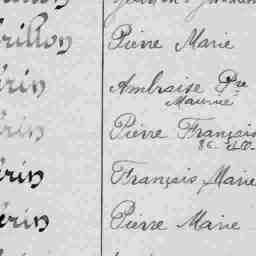 rillon Pierre Marie
érin Ambroise Pre
Maurice
érin Pierre François
érin François Marie
érin Pierre Marie